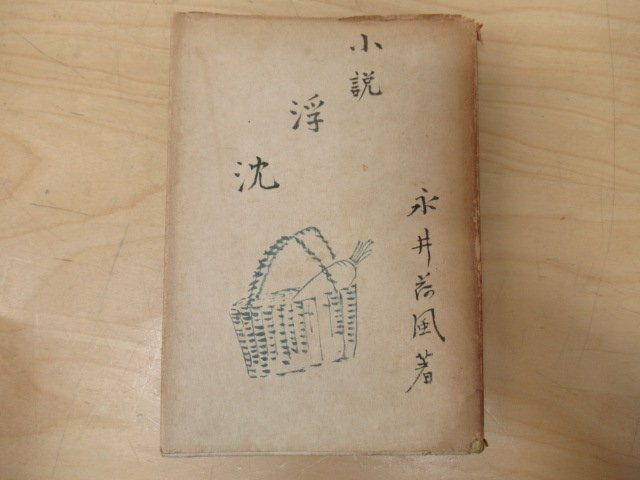 小説
浮沈
永井荷風著